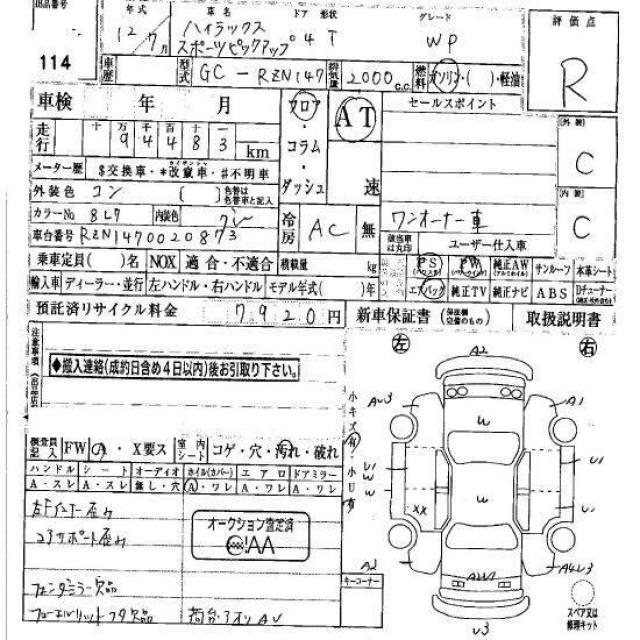 出品番号 年式 車名 ドア 形状 グレード 評価点
114 12 7月 ハイラックス
スポーツピックアップ 4T WP R
車歴 型式 GC-RZN147 排気量 2000 c.c. 燃料 ガソリン・( )・軽油
車検 年 月 フロア・コラム・ダッシュ AT 速 セールスポイント
走行 十 万 千 百 十 一
9 4 4 8 3 km
外装 C
メーター歴 $交換車・*改竄車・#不明車
外装色 コン [ ] 色替は色替車と記入
内装 C
カラーNo 8L7 内装色 グレー 冷房 AC 無 ワンオーナー車
車台番号 RZN1470020873 該当車は丸印 ユーザー仕入車
乗車定員( )名 NOX 適合・不適合 積載量 kg PS PW 純正AW サンルーフ 本革シート
輸入車 ディーラー・並行 左ハンドル・右ハンドル モデル年式( )年 エアバッグ 純正TV 純正ナビ ABS Dチューナー
預託済リサイクル料金 7920円 新車保証書 (保証欄完備のもの) 取扱説明書
注意事項
◆搬入連絡(成約日含め4日以内)後お引取り下さい。
左 右
A2
AU3 A1
小キズ有・小U有
W
U1 W W U1
W
XX U1
検査員記入 FW A・X要ス 室内シート コゲ・穴・汚れ・破れ
ハンドル シート オーディオ ホイル(カバー) エアロ ドアミラー
A・スレ A・スレ 無し・穴 A・ワレ A・ワレ A・ワレ
左Fインナー歪み
コアサポート歪み
オークション査定済
AA
A2 A4U3
キーコーナー
フェンダミラー欠品
フューエルリットフタ欠品 荷台・アオリAU
U3
スペア又は修理キット